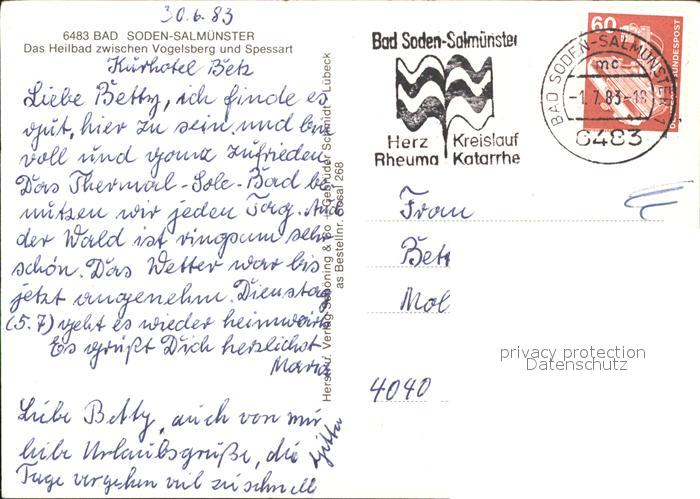 30.6.83
6483 BAD SODEN-SALMÜNSTER
Das Heilbad zwischen Vogelsberg und Spessart
Kurhotel Betz
Liebe Betty, ich finde es
gut, hier zu sein und bin
voll und ganz zufrieden.
Das Thermal-Sole-Bad be
nutzen wir jeden Tag. Auch
der Wald ist ringsum sehr
schön. Das Wetter war bis
jetzt angenehm. Dienstag
(5.7) geht es wieder heimwärts
Es grüßt Dich herzlichst
Maria
Liebe Betty, auch von mir
liebe Urlaubsgrüße, die
Tage vergehen viel zu schnell
Herst. u. Verlag Schöning & Co + Gebrüder Schmidt, Lübeck
as Bestellnr. 268
Bad Soden-Salmünster
Herz Kreislauf
Rheuma Katarrhe
60
DEUTSCHE BUNDESPOST
BAD SODEN-SALMÜNSTER 1
mc
-1.7.83-18
6483
Frau
Bett
Mol
4040
privacy protection
Datenschutz